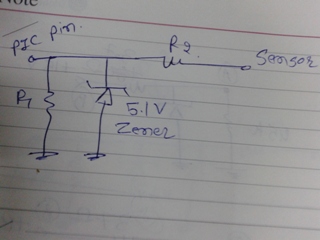 Note
PIC pin.
R2
Sensor
R1
5.1V
Zener